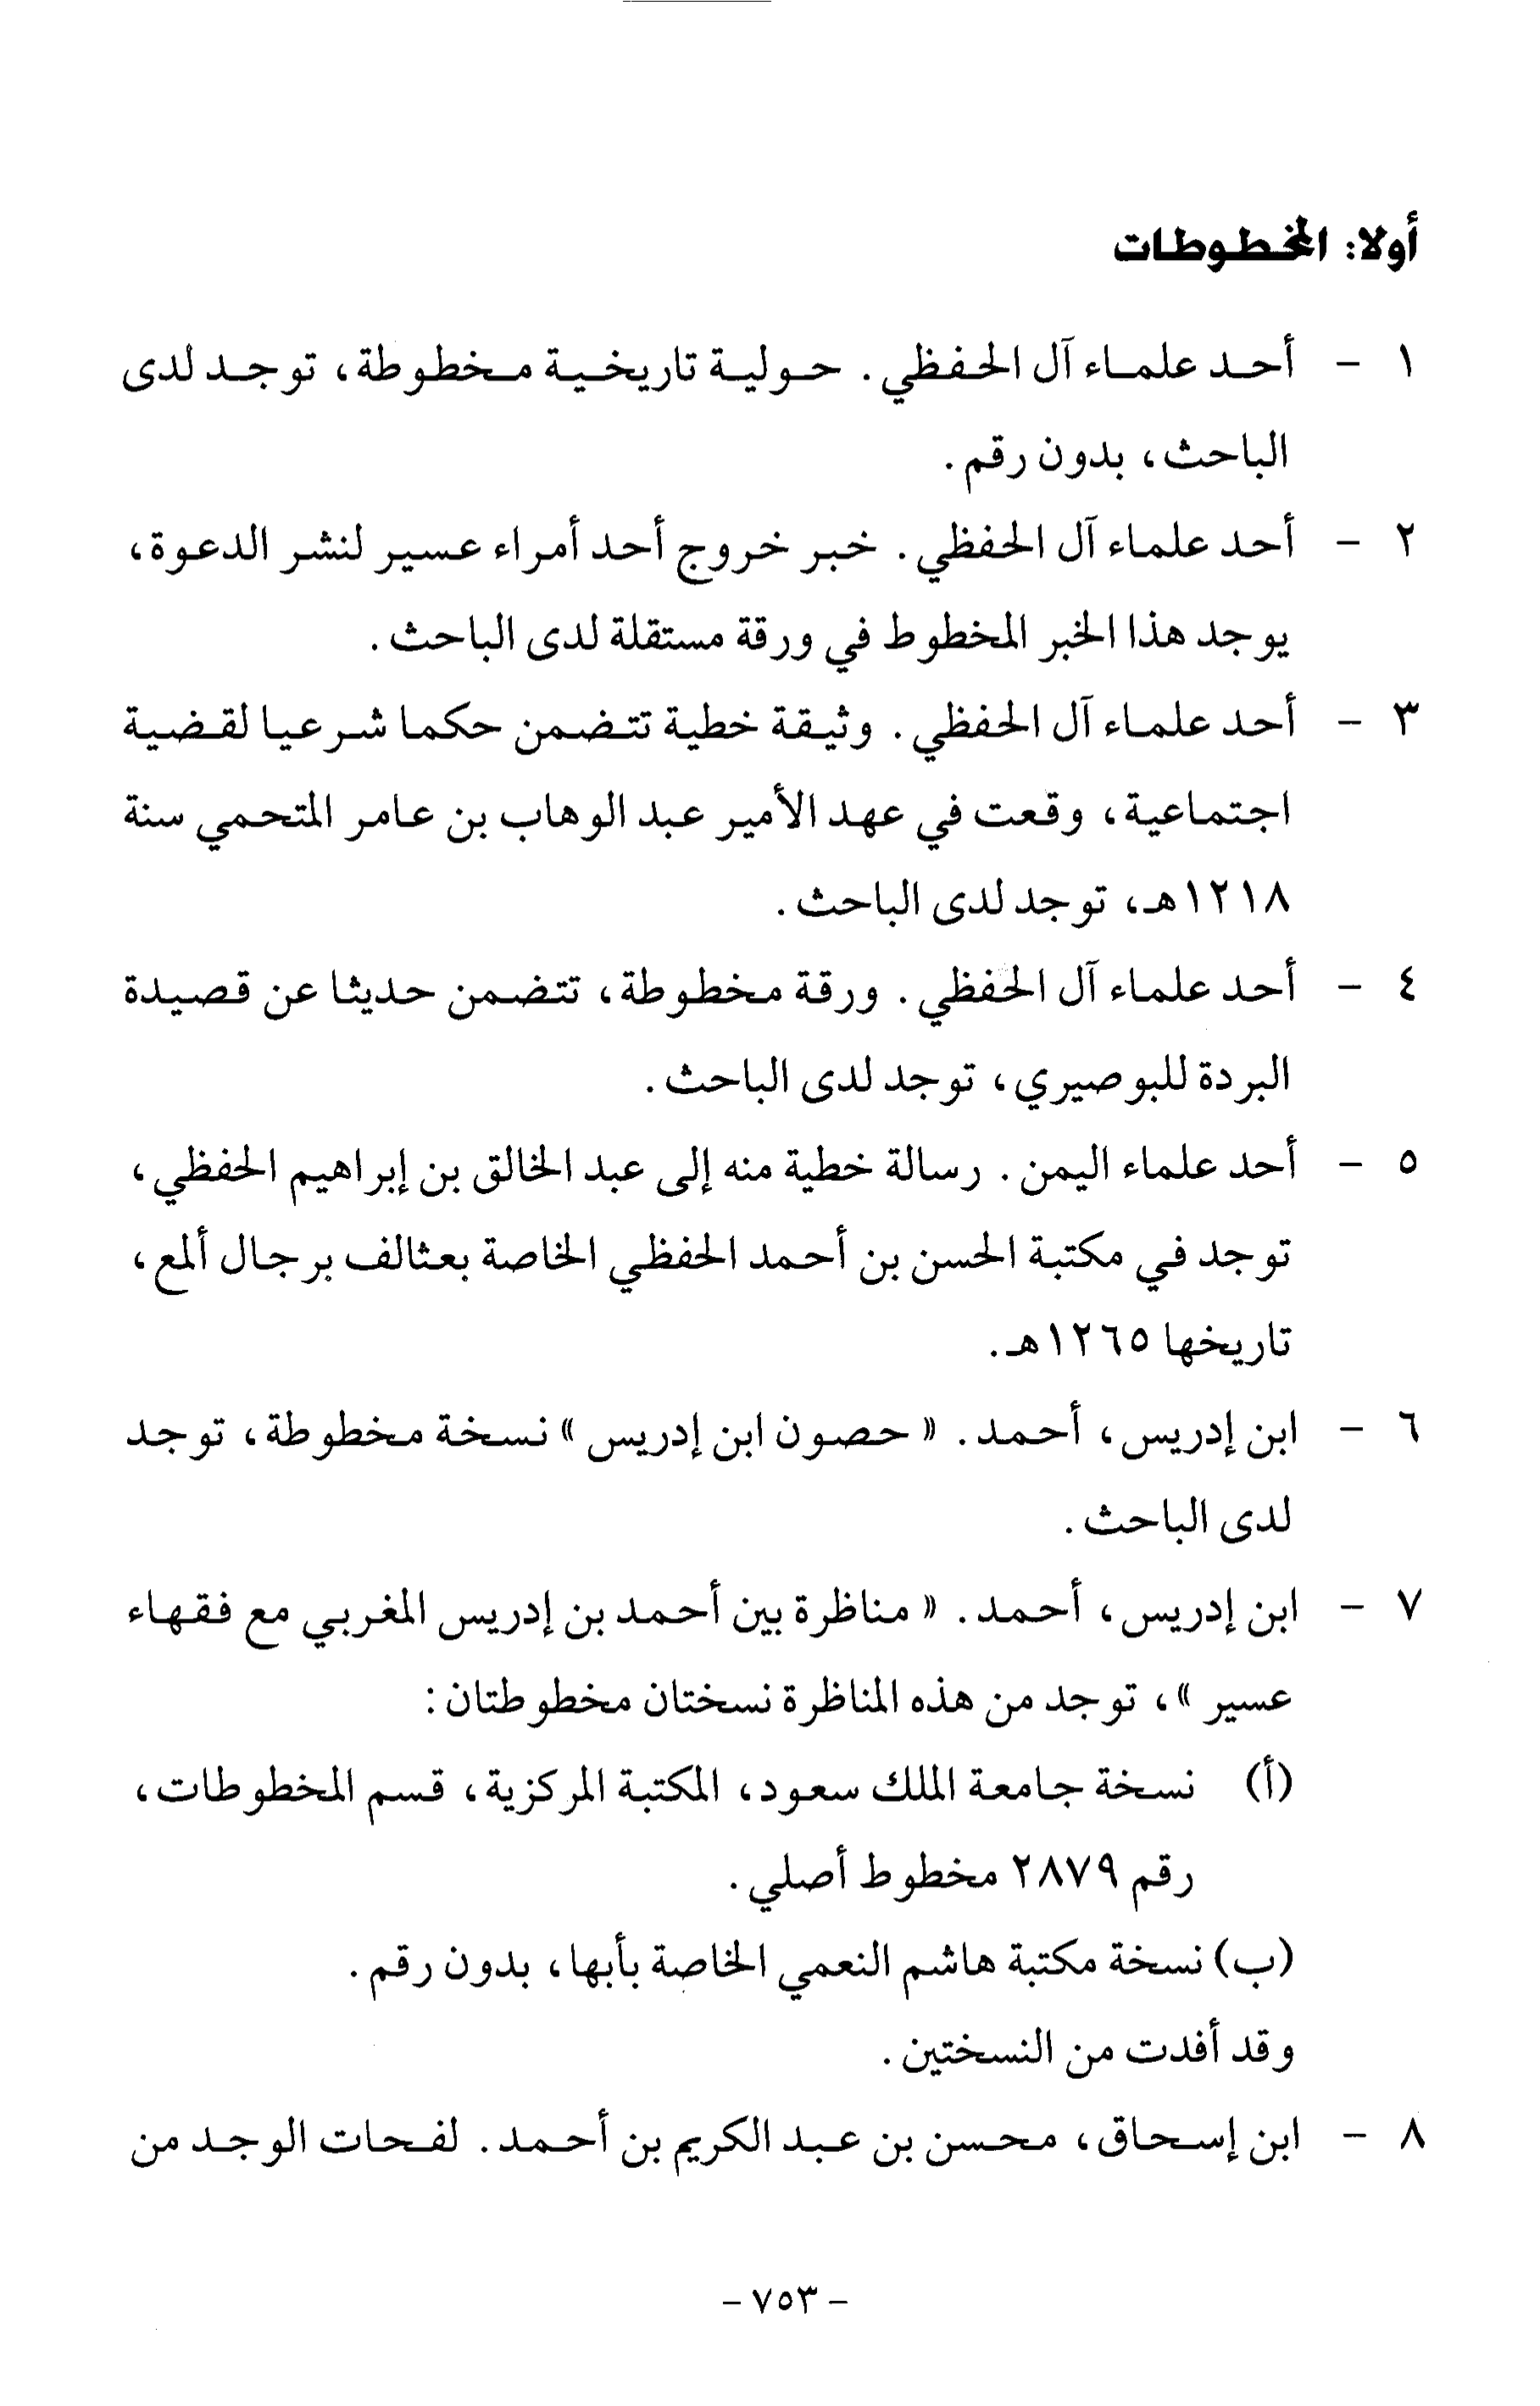 أولا: المخطوطات
١ - أحد علماء آل الحفظي. حولية تاريخية مخطوطة، توجد لدى
الباحث، بدون رقم.
٢ - أحد علماء آل الحفظي. خبر خروج أحد أمراء عسير لنشر الدعوة،
يوجد هذا الخبر المخطوط في ورقة مستقلة لدى الباحث.
٣ - أحد علماء آل الحفظي. وثيقة خطية تتضمن حكما شرعيا لقضية
اجتماعية، وقعت في عهد الأمير عبد الوهاب بن عامر المتحمي سنة
١٢١٨هـ، توجد لدى الباحث.
٤ - أحد علماء آل الحفظي. ورقة مخطوطة، تتضمن حديثا عن قصيدة
البردة للبوصيري، توجد لدى الباحث.
٥ - أحد علماء اليمن. رسالة خطية منه إلى عبد الخالق بن إبراهيم الحفظي،
توجد في مكتبة الحسن بن أحمد الحفظي الخاصة بعثالف برجال ألمع،
تاريخها ١٢٦٥هـ.
٦ - ابن إدريس، أحمد. « حصون ابن إدريس » نسخة مخطوطة، توجد
لدى الباحث.
٧ - ابن إدريس، أحمد. « مناظرة بين أحمد بن إدريس المغربي مع فقهاء
عسير »، توجد من هذه المناظرة نسختان مخطوطتان:
(أ) نسخة جامعة الملك سعود، المكتبة المركزية، قسم المخطوطات،
رقم ٢٨٧٩ مخطوط أصلي.
(ب) نسخة مكتبة هاشم النعمي الخاصة بأبها، بدون رقم.
وقد أفدت من النسختين.
٨ - ابن إسحاق، محسن بن عبد الكريم بن أحمد. لفحات الوجد من
- ٧٥٣ -